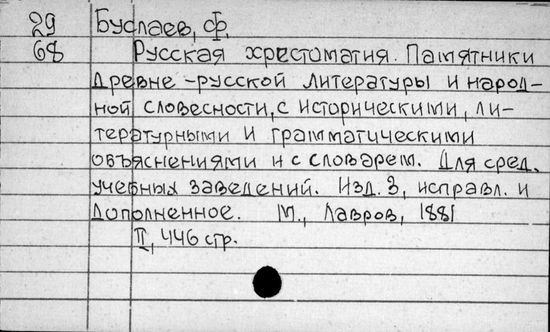 29 Буслаев, Ф.
68 Русская хрестоматия. Памятники
древне-русской литературы и народ-
ной словесности, с историческими, ли-
тературными и грамматическими
объяснениями и с словарем. Для сред.
учебных заведений. Изд. 3, исправл. и
дополненное. М., Лавров, 1881
II, 446 стр.